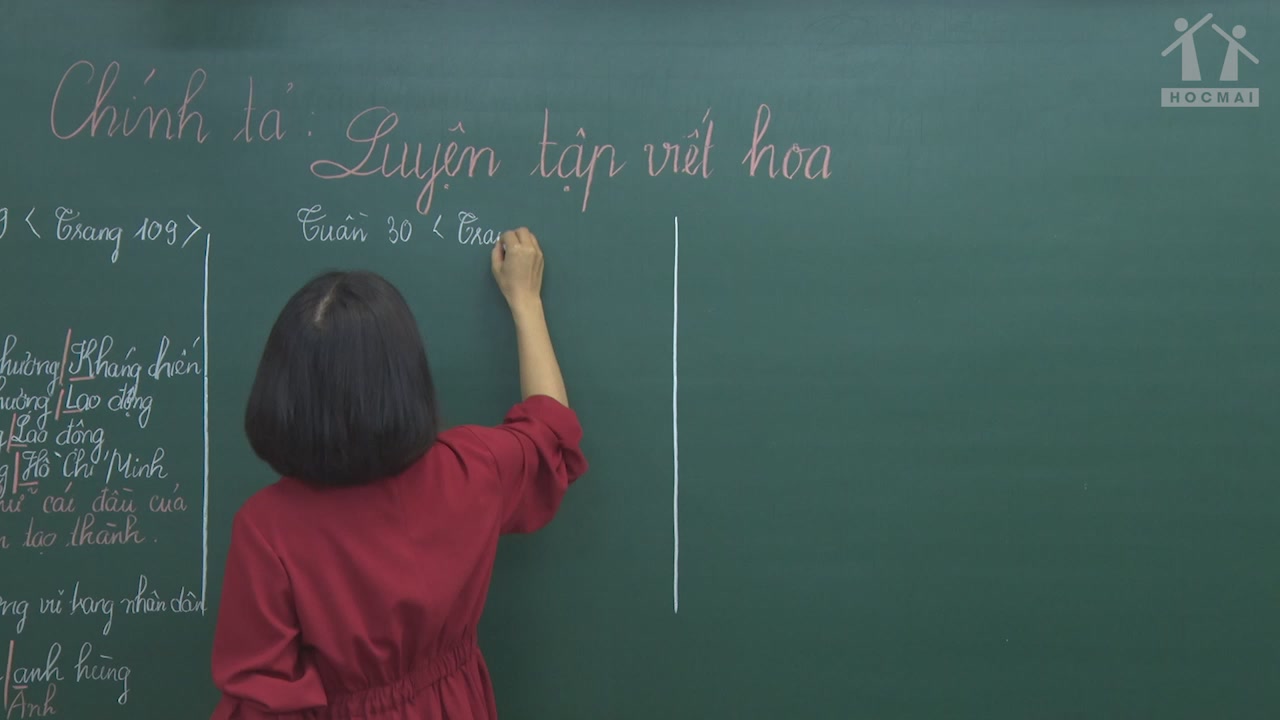 HOCMAI
Chính tả: Luyện tập viết hoa
9 < Trang 109 >
Kháng chiến
Lao động
Lao động
Hồ Chí Minh
cái đầu của
tạo thành.
vũ trang nhân dân
anh hùng
Anh
Tuần 30 < Tra